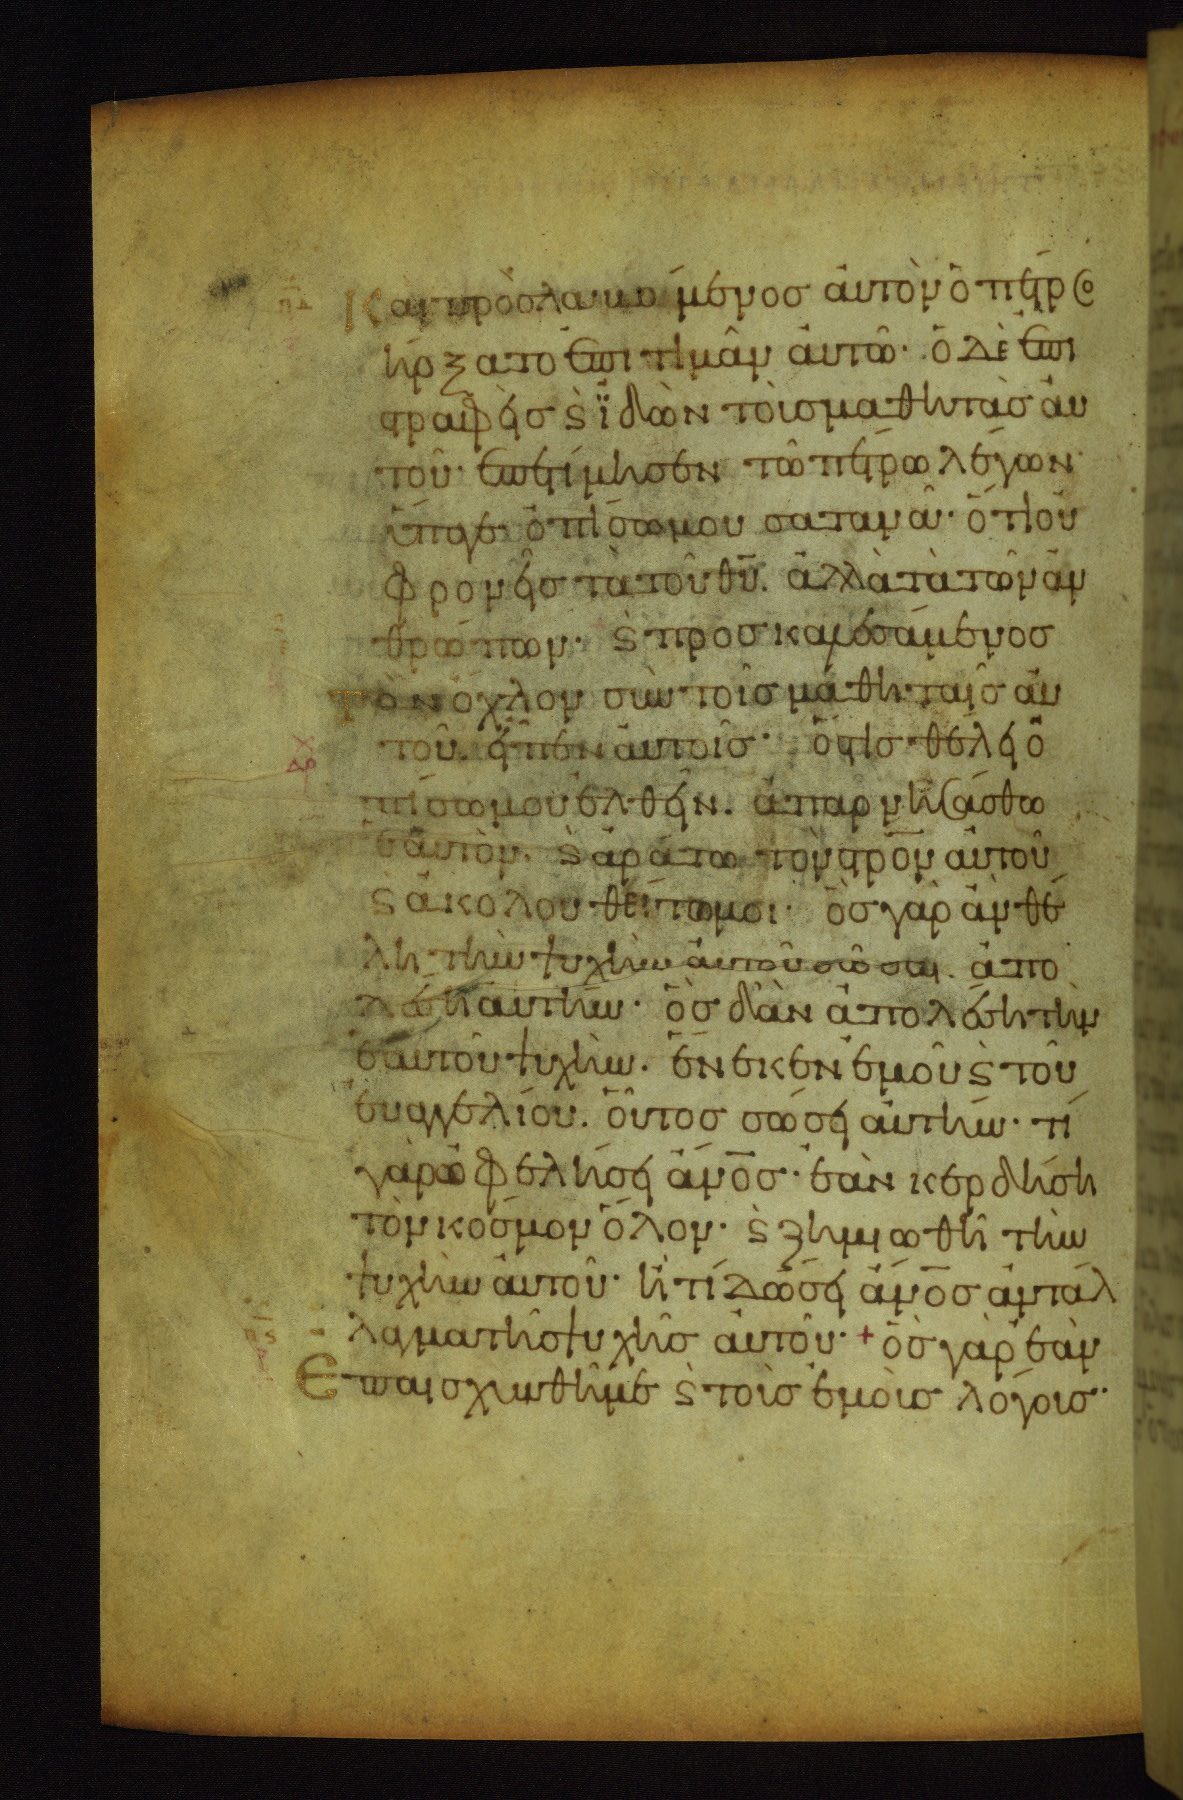 Καὶ προσλαβόμενος αὐτὸν ὁ πέτρος
ἤρξατο ἐπιτιμᾶν αὐτῶ· ὁ δὲ ἐπι
στραφεὶς ϗ ἰδὼν τοὺς μαθητὰς αὐ
τοῦ· ἐπετίμησεν τῶ πέτρω λέγων·
ὕπαγε ὀπίσω μου σατανᾶ· ὅτι οὐ
φρονεῖς τὰ τοῦ θυ̅. ἀλλὰ τὰ τῶν ἀν
θρώπων· ϗ προσκαλεσάμενος
Τὸν ὄχλον σὺν τοῖς μαθηταῖς αὐ
τοῦ. εἶπεν αὐτοῖς· ὅστις θέλει ὀ
πίσω μου ἐλθεῖν. ἀπαρνησάσθω
ἑαυτὸν. ϗ ἀράτω τὸν στρο̅ν αὐτοῦ
ϗ ἀκολουθείτω μοι· ὃς γὰρ ἂν θέ
λη τὴν ψυχὴν αὐτοῦ σῶσαι. ἀπο
λέσει αὐτήν· ὃς δ' ἂν ἀπολέση τὴν
ἑαυτοῦ ψυχὴν. ἕνεκεν ἐμοῦ ϗ τοῦ
εὐαγγελίου. οὗτος σώσει αὐτήν· τί
γὰρ ὠφελήσει ἄνο̅ς· ἐὰν κερδήση
τὸν κόσμον ὅλον· ϗ ζημιωθῆ τὴν
ψυχὴν αὐτοῦ· ἢ τί δώσει ἄνο̅ς ἀντάλ
λαγμα τῆς ψυχῆς αὐτοῦ· + ὃς γὰρ ἐὰν
Ἐπαισχυνθῆ με ϗ τοὺς ἐμοὺς λόγους·